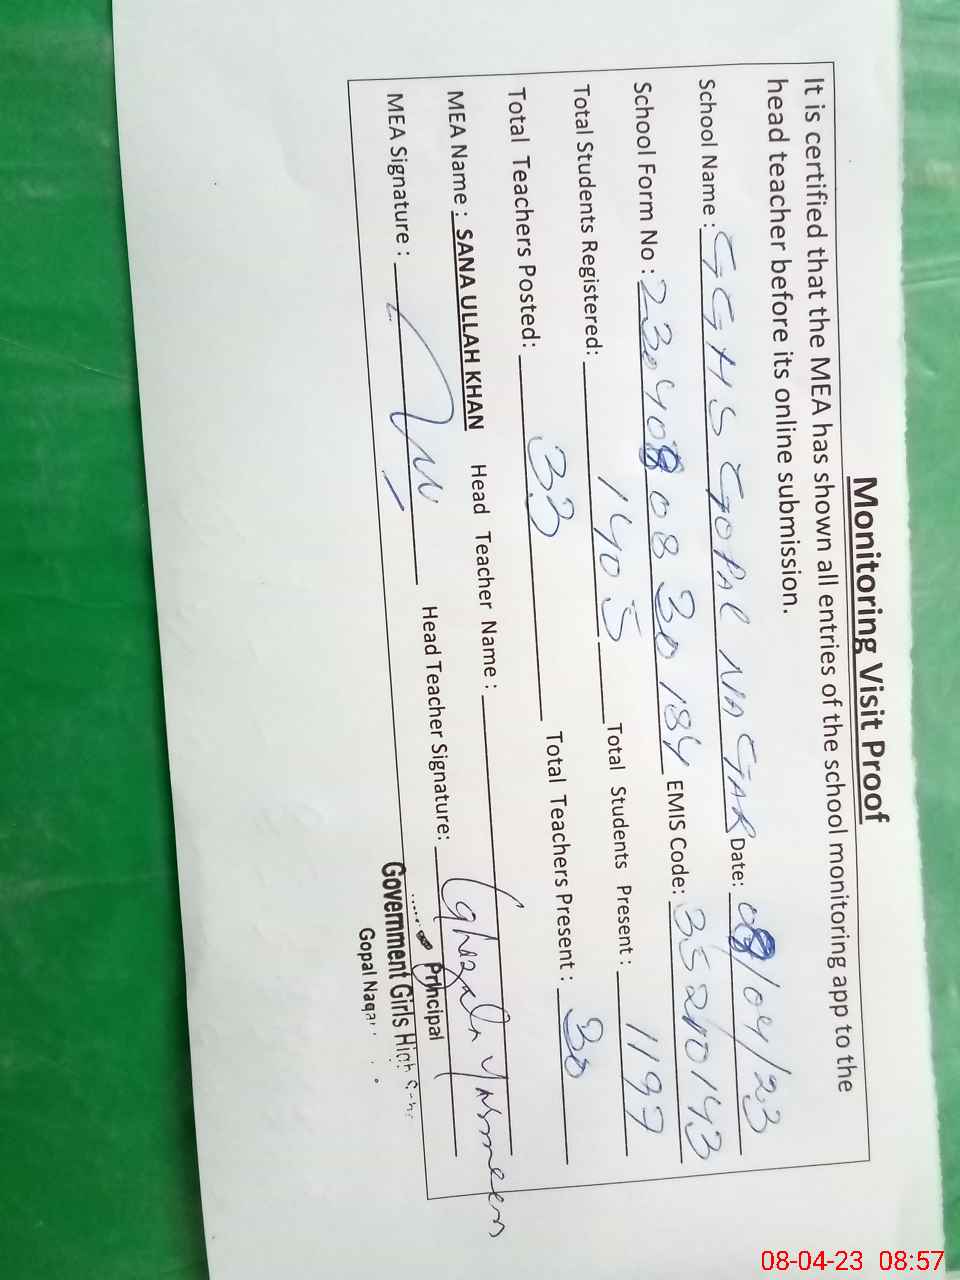 Monitoring Visit Proof
It is certified that the MEA has shown all entries of the school monitoring app to the
head teacher before its online submission.
School Name : GGHS GOPAL NAGAR Date: 08/04/23
School Form No : 230408 08 30 184 EMIS Code: 35210143
Total Students Registered: 1405 Total Students Present : 1197
Total Teachers Posted: 33 Total Teachers Present : 30
MEA Name : SANA ULLAH KHAN Head Teacher Name : Ghazala Yasmeen
MEA Signature : Head Teacher Signature:
Principal
Government Girls High
Gopal Nagar
08-04-23 08:57